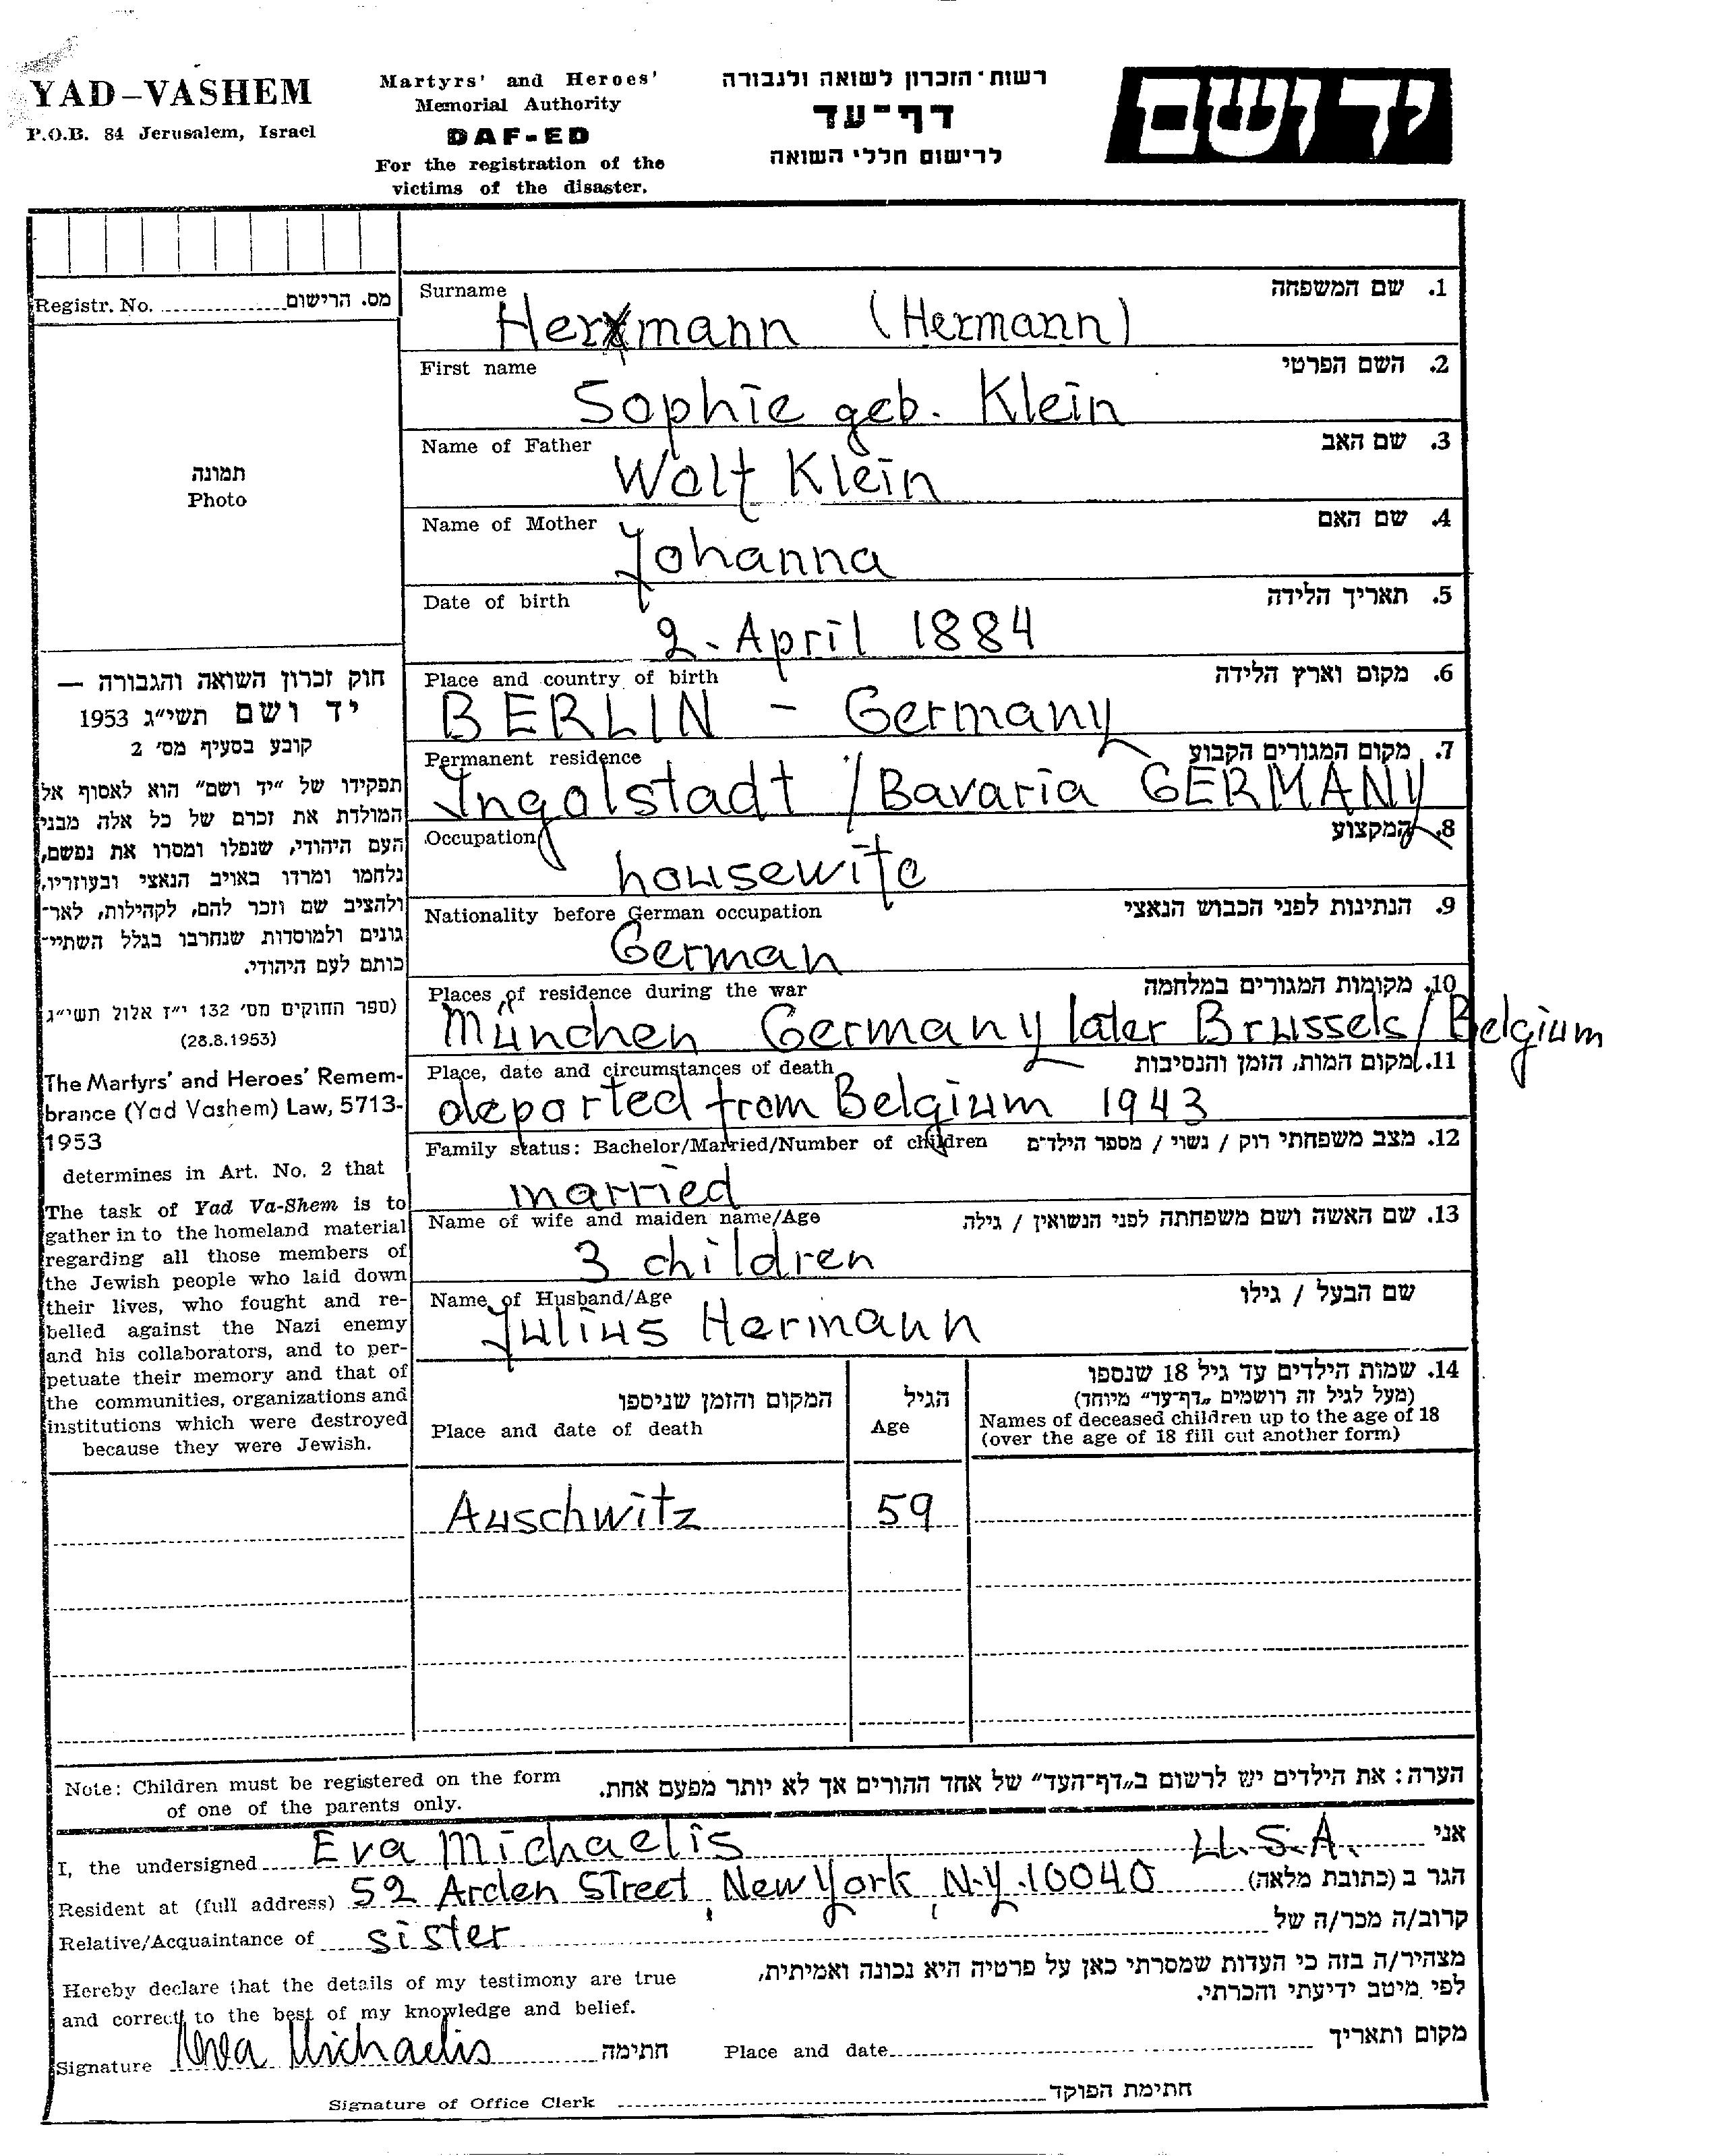 YAD-VASHEM
P.O.B. 84 Jerusalem, Israel
Martyrs' and Heroes'
Memorial Authority
DAF-ED
For the registration of the
victims of the disaster.
רשות־הזכרון לשואה ולגבורה
דף־עד
לרישום חללי השואה
יד ושם
Registr. No. מס. הרישום
תמונה
Photo
חוק זכרון השואה והגבורה —
יד ושם תשי"ג 1953
קובע בסעיף מס' 2
תפקידו של "יד ושם" הוא לאסוף אל
המולדת את זכרם של כל אלה מבני
העם היהודי, שנפלו ומסרו את נפשם,
נלחמו ומרדו באויב הנאצי ובעוזריו,
ולהציב שם וזכר להם, לקהילות, לאר־
גונים ולמוסדות שנחרבו בגלל השתיי־
כותם לעם היהודי.
(ספר החוקים מס' 132 י"ז אלול תשי"ג
(28.8.1953)
The Martyrs' and Heroes' Remem-
brance (Yad Vashem) Law, 5713-
1953
determines in Art. No. 2 that
The task of Yad Va-Shem is to
gather in to the homeland material
regarding all those members of
the Jewish people who laid down
their lives, who fought and re-
belled against the Nazi enemy
and his collaborators, and to per-
petuate their memory and that of
the communities, organizations and
institutions which were destroyed
because they were Jewish.
Surname 1. שם המשפחה
Hermann (Hermann)
First name 2. השם הפרטי
Sophie geb. Klein
Name of Father 3. שם האב
Wolf Klein
Name of Mother 4. שם האם
Johanna
Date of birth 5. תאריך הלידה
2. April 1884
Place and country of birth 6. מקום וארץ הלידה
BERLIN - Germany
Permanent residence 7. מקום המגורים הקבוע
Ingolstadt / Bavaria GERMANY
Occupation 8. המקצוע
housewife
Nationality before German occupation 9. הנתינות לפני הכבוש הנאצי
German
Places of residence during the war 10. מקומות המגורים במלחמה
München Germany later Brussels / Belgium
Place, date and circumstances of death 11. מקום המות, הזמן והנסיבות
deported from Belgium 1943
Family status: Bachelor/Married/Number of children 12. מצב משפחתי רוק / נשוי / מספר הילדים
married
Name of wife and maiden name/Age 13. שם האשה ושם משפחתה לפני הנשואין / גילה
3 children
Name of Husband/Age שם הבעל / גילו
Julius Hermann
המקום והזמן שניספו
Place and date of death
הגיל
Age
14. שמות הילדים עד גיל 18 שנספו
(מעל לגיל זה רושמים "דף־עד" מיוחד)
Names of deceased children up to the age of 18
(over the age of 18 fill out another form)
Auschwitz 59
Note: Children must be registered on the form
of one of the parents only.
הערה: את הילדים יש לרשום ב"דף־העד" של אחד ההורים אך לא יותר מפעם אחת.
I, the undersigned Eva Michaelis U.S.A. אני
Resident at (full address) 52 Arden Street, New York, N.Y. 10040 הגר ב (כתובת מלאה)
Relative/Acquaintance of sister קרוב/ה מכר/ה של
Hereby declare that the details of my testimony are true
and correct to the best of my knowledge and belief.
מצהיר/ה בזה כי העדות שמסרתי כאן על פרטיה היא נכונה ואמיתית,
לפי מיטב ידיעתי והכרתי.
Signature Eva Michaelis חתימה Place and date מקום ותאריך
Signature of Office Clerk חתימת הפוקד